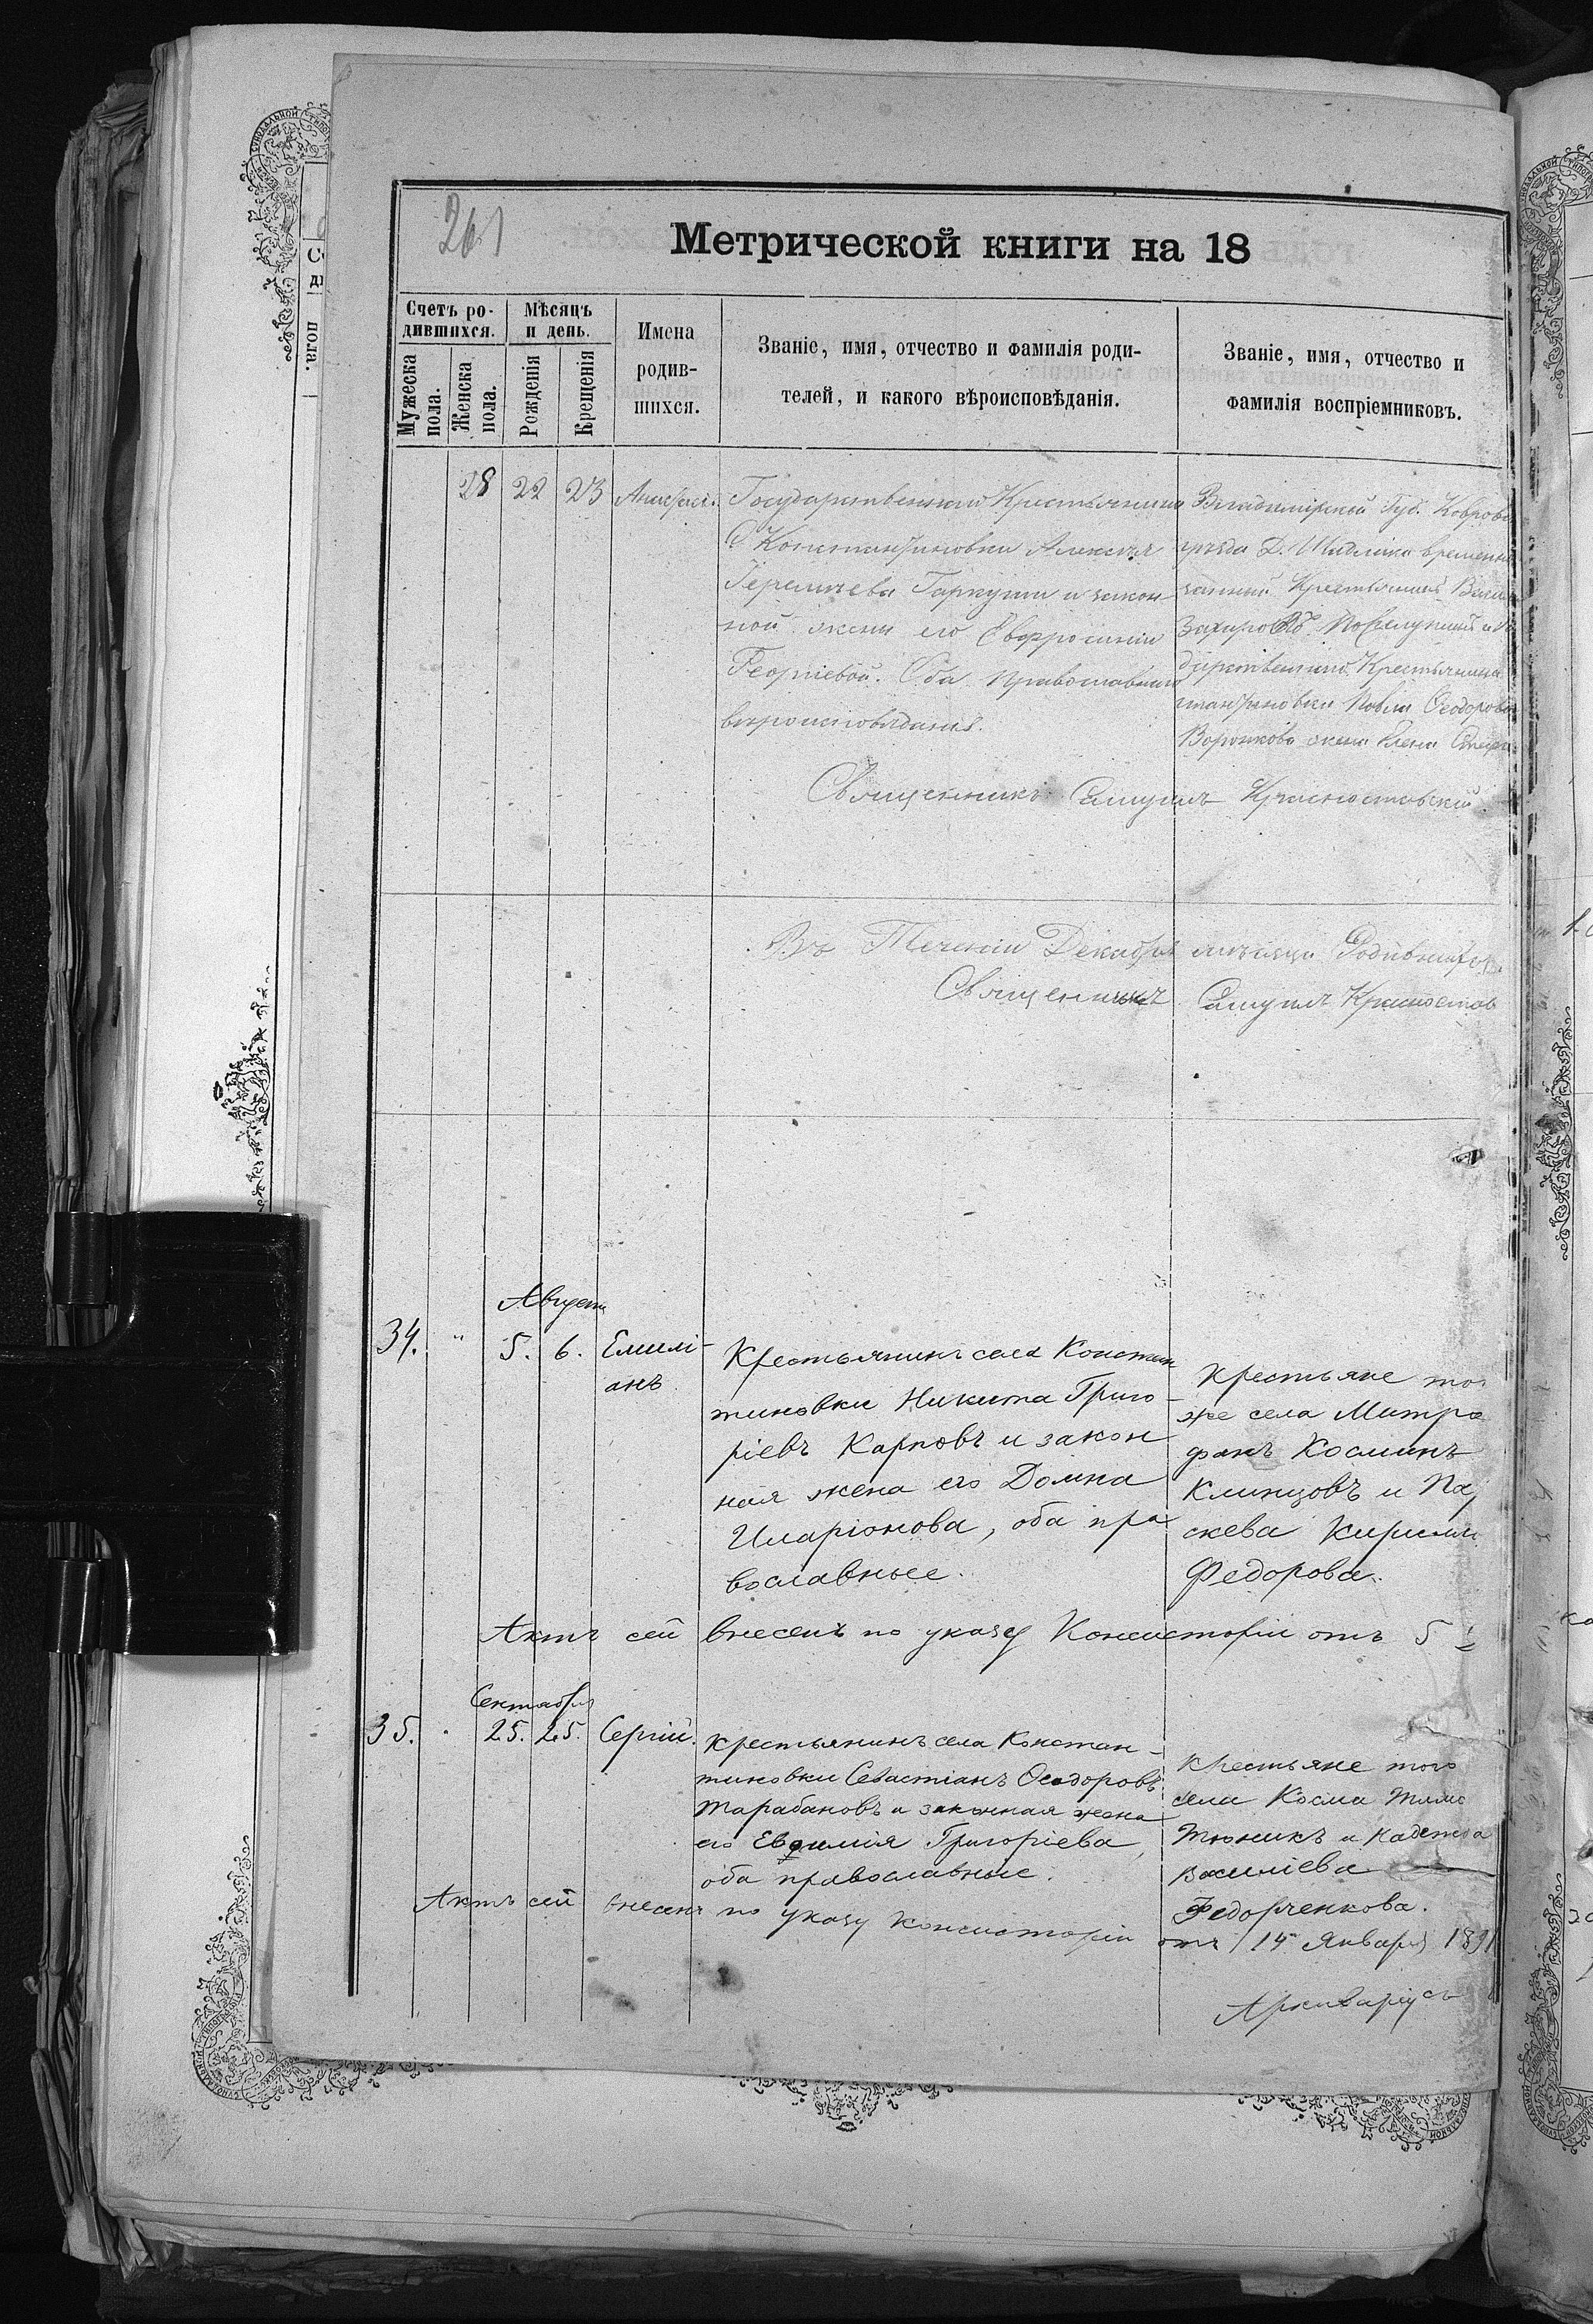 261
Метрической книги на 18
Счетъ ро-
дившихся.
Мѣсяцъ
и день.
Мужеска
пола.
Женска
пола.
Рожденія
Крещенія
Имена
родив-
шихся.
Званіе, имя, отчество и фамилія роди-
телей, и какого вѣроисповѣданія.
Званіе, имя, отчество и
фамилія воспріемниковъ.
28 22 23
Государственный Крестьянинъ
С. Константиновки Алексѣя
Гаркуши и закон-
ной жены его Евфросиніи
Георгіевой. Оба православнаго
вѣроисповѣданія.
Владимірской Губ. Ковров
уѣзда Д.
Крестьянинъ
Захаровъ
Крестьянина
Павла Ѳеодорова
Воронкова жена Елена
Священникъ Самуилъ
Въ Теченіи Декабря мѣсяца
Священникъ Самуилъ
Августа
34. " 5. 6. Емилі-
анъ.
Крестьянинъ села Констан
тиновки Никита Григо-
ріевъ Карповъ и закон
ная жена его Домна
Иларіонова, оба пра
вославные.
Крестьяне то
же села Митро
фанъ Косминъ
Клинцовъ и Па
скева Кирилл
Федорова.
Актъ сей внесенъ по указу Консисторіи отъ 5
Сентября
35. 25. 25. Сергій.
Крестьянинъ села Констан-
тиновки Севастіанъ Ѳеодоровъ
Тарабановъ и законная жена
его Евфимія Григоріева,
оба православные.
Крестьяне того
села Косма
и Надежда
Василіева
Федорченкова.
Актъ сей внесенъ по указу Консисторіи отъ 14 Января 1891
Архиваріусъ